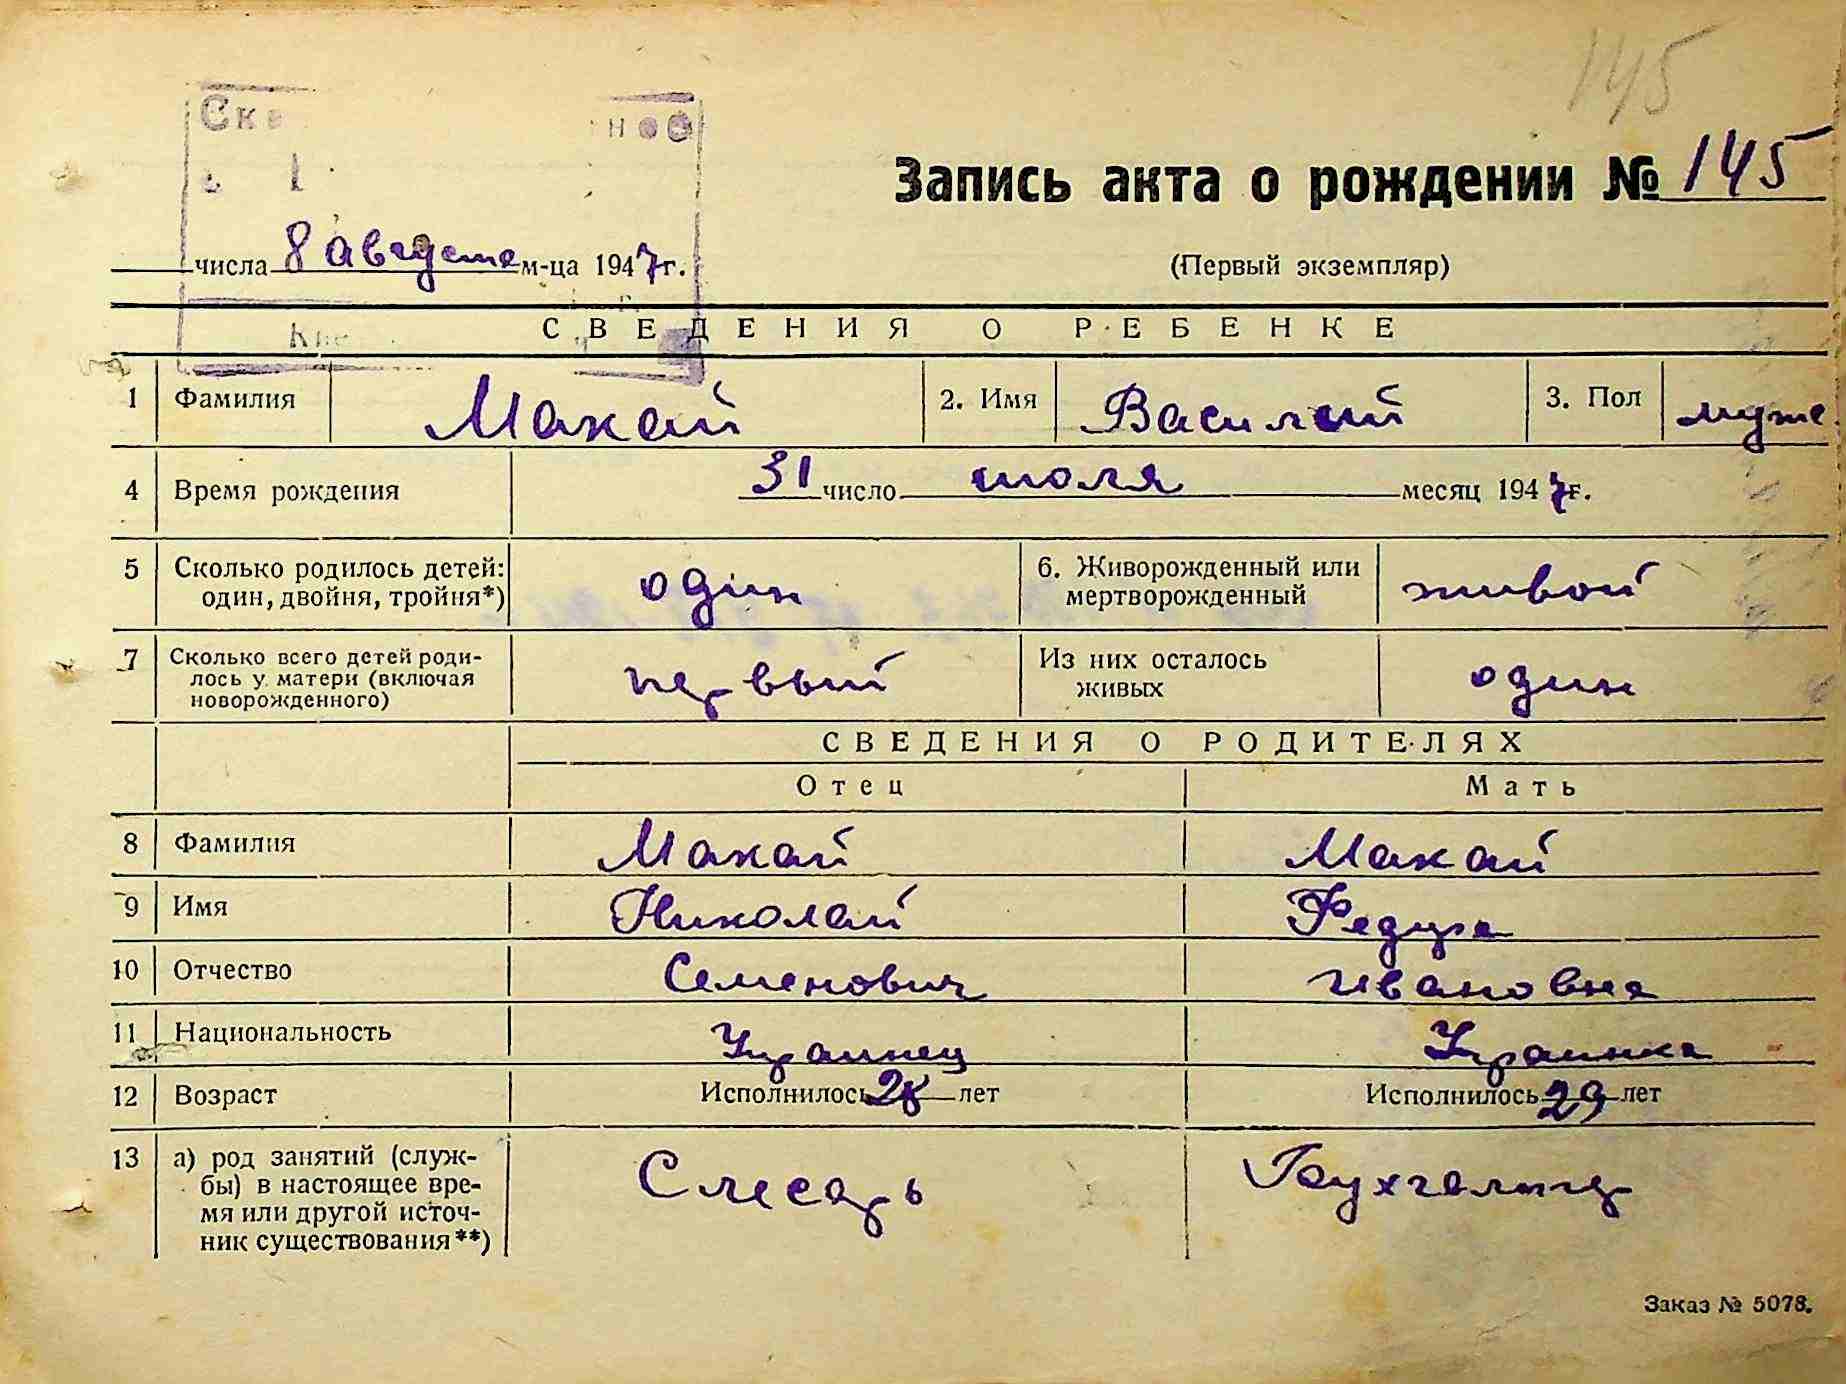 145
Запись акта о рождении № 145
числа 8 августа м-ца 1947 г.
(Первый экземпляр)
СВЕДЕНИЯ О РЕБЕНКЕ
1 Фамилия Макай 2. Имя Василий 3. Пол муже
4 Время рождения 31 число июля месяц 1947 г.
5 Сколько родилось детей: один 6. Живорожденный или живой
один, двойня, тройня*) мертворожденный
7 Сколько всего детей роди- первый Из них осталось один
лось у матери (включая живых
новорожденного)
СВЕДЕНИЯ О РОДИТЕЛЯХ
Отец Мать
8 Фамилия Макай Макай
9 Имя Николай
10 Отчество Семенович Ивановна
11 Национальность Украинец Украинка
12 Возраст Исполнилось 28 лет Исполнилось 29 лет
13 а) род занятий (служ- Слесарь Бухгалтер
бы) в настоящее вре-
мя или другой источ-
ник существования**)
Заказ № 5078.